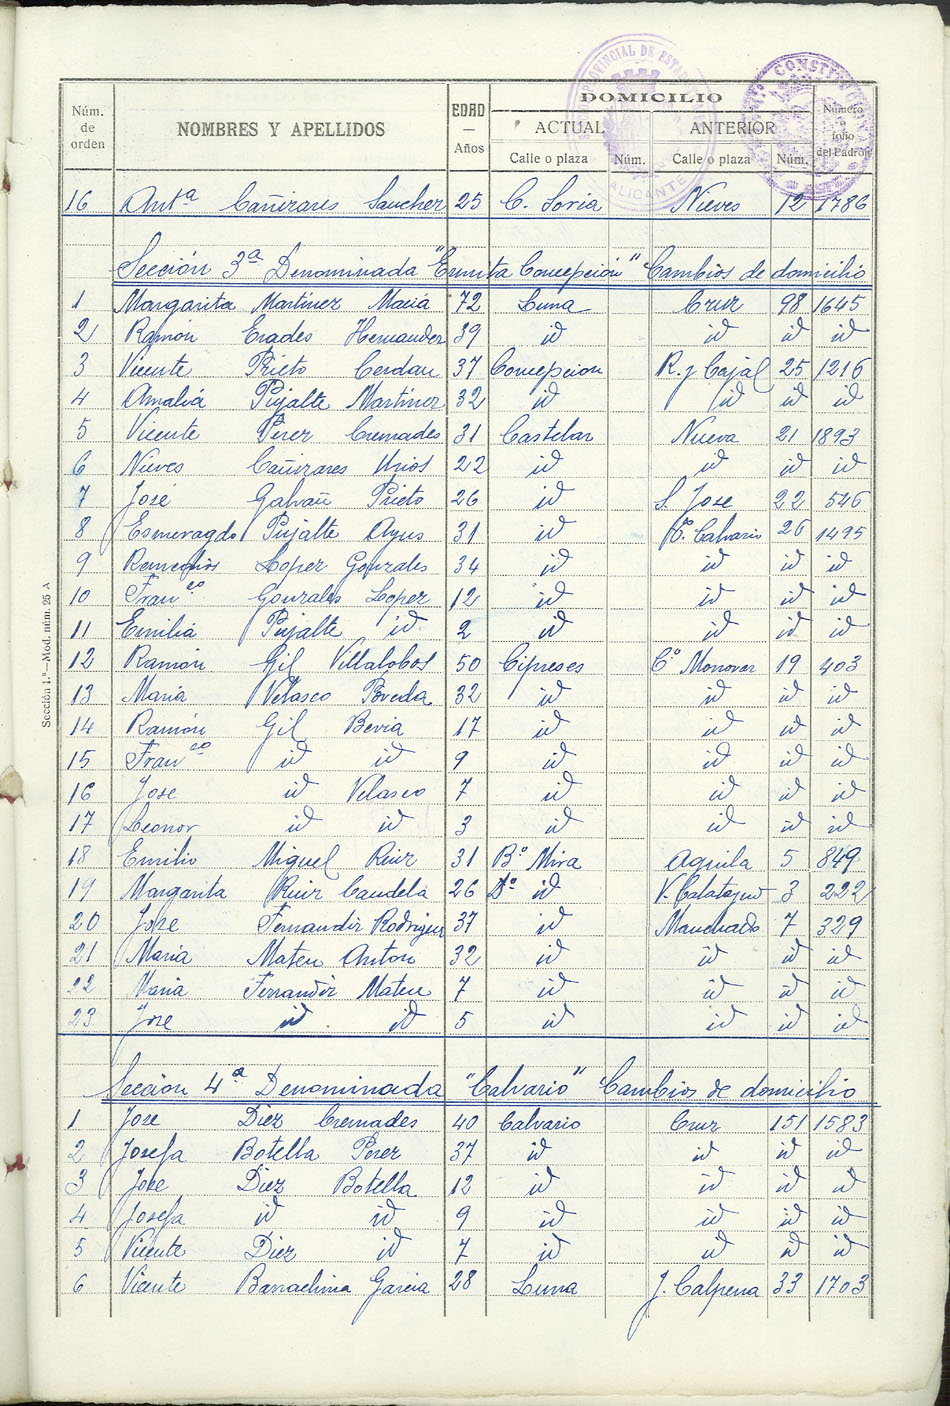 PROVINCIAL DE
ALICANTE
CONSTI
Núm. de orden
NOMBRES Y APELLIDOS
EDAD — Años
DOMICILIO
ACTUAL
ANTERIOR
Calle o plaza
Núm.
Calle o plaza
Núm.
Número o folio del Padrón
16 Antª Cañizares Sanchez 25 C. Soria Nieves 12 1786
Sección 3ª Denominada "Ermita Concepción" Cambios de domicilio
1 Margarita Martinez Maciá 72 Luna Cruz 98 1645
2 Ramón Erades Hernandez 39 id id id id
3 Vicente Prieto Cerdan 37 Concepcion R. y Cajal 25 1216
4 Amalia Pujalte Martinez 32 id id id id
5 Vicente Pérez Cremades 31 Castelar Nueva 21 1893
6 Nieves Cañizares Urios 22 id id id id
7 José Galvañ Prieto 26 id S. Jose 22 546
8 Esmeragdo Pujalte Ayus 31 id Calvario 26 1495
9 Remedios Lopez Gonzales 34 id id id id
10 Franᶜᵒ Gonzales Lopez 12 id id id id
11 Emilia Pujalte id 2 id id id id
12 Ramón Gil Villalobos 50 Cipreses Cº Monovar 19 403
13 Maria Velasco Poveda 32 id id id id
14 Ramón Gil Bevia 17 id id id id
15 Franᶜᵒ id id 9 id id id id
16 Jose id Velasco 7 id id id id
17 Leonor id id 3 id id id id
18 Emilio Miguel Ruiz 31 Bº Mira Aguila 5 849
19 Margarita Ruiz Candela 26 Dº id V. Calatayud 3 222
20 Jose Fernandiz Rodriguez 37 id Manchado 7 329
21 Maria Mateu Anton 32 id id id id
22 Maria Ferrandiz Mateu 7 id id id id
23 Jose id id 5 id id id id
Sección 4ª Denominada "Calvario" Cambios de domicilio
1 Jose Diez Cremades 40 Calvario Cruz 151 1583
2 Josefa Botella Perez 37 id id id id
3 Jose Diez Botella 12 id id id id
4 Josefa id id 9 id id id id
5 Vicente Diez id 7 id id id id
6 Vicente Barrachina Garcia 28 Luna J. Calpena 33 1703
Sección 1.ª—Mod. núm. 25 A